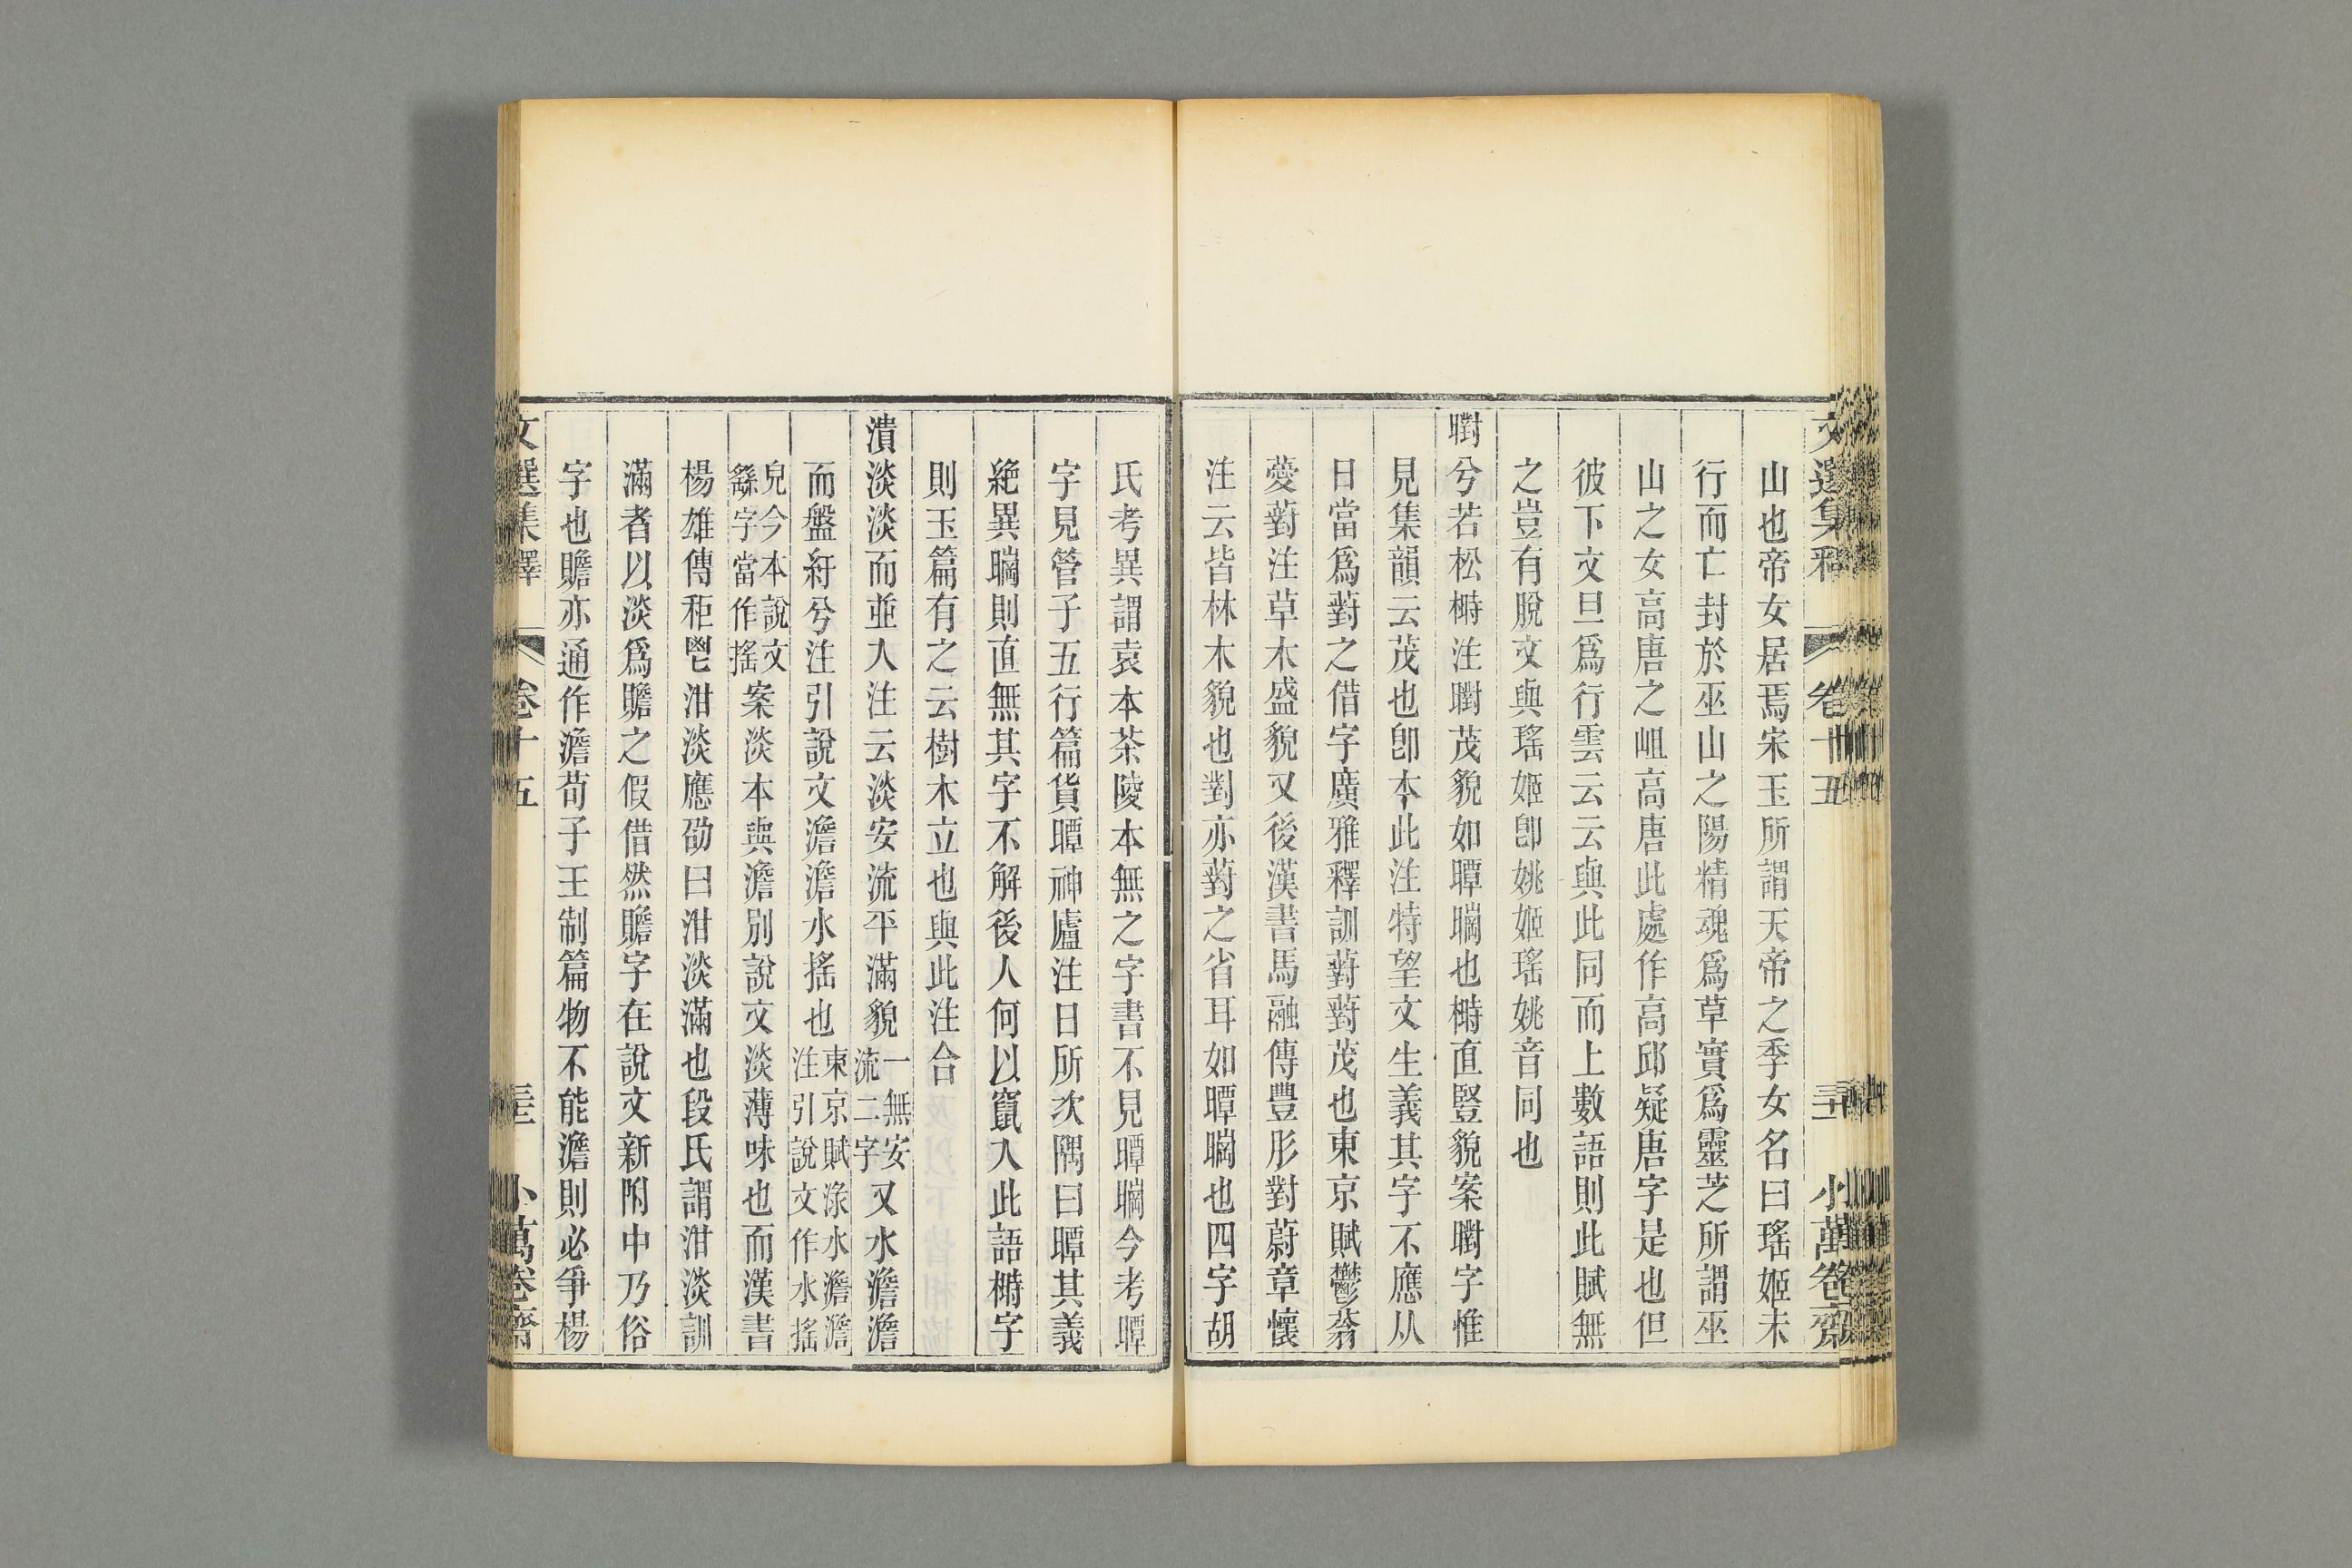 山也帝女居焉宋玉所謂天帝之季女名曰瑤姬未
行而亡封於巫山之陽精魂爲草實爲靈芝所謂巫
山之女高唐之岨高唐此處作高邱疑唐字是也但
彼下文旦爲行雲云云與此同而上數語則此賦無
之豈有脫文與瑤姬卽姚姬瑤姚音同也
㬣兮若松榯注㬣茂貌如㬛㬾也榯直豎貌案㬣字惟
見集韻云茂也卽本此注特望文生義其字不應从
日當爲薱之借字廣雅釋訓薱薱茂也東京賦鬱蓊
薆薱注草木盛貌又後漢書馬融傳豐肜對蔚章懷
注云皆林木貌也對亦薱之省耳如㬛㬾也四字胡
氏考異謂袁本茶陵本無之字書不見㬛㬾今考㬛
字見管子五行篇貨㬛神廬注曰所次隅曰㬛其義
絶異㬾則直無其字不解後人何以竄入此語榯字
則玉篇有之云樹木立也與此注合
潰淡淡而並入注云淡安流平滿貌一無安流二字又水澹澹
而盤紆兮注引說文澹澹水搖也東京賦淥水澹澹注引說文作水搖
皃今本說文繇字當作搖案淡本與澹別說文淡薄味也而漢書
楊雄傳秬鬯泔淡應劭曰泔淡滿也段氏謂泔淡訓
滿者以淡爲贍之假借然贍字在說文新附中乃俗
字也贍亦通作澹荀子王制篇物不能澹則必爭楊
文選集釋 卷十五 小萬卷齋